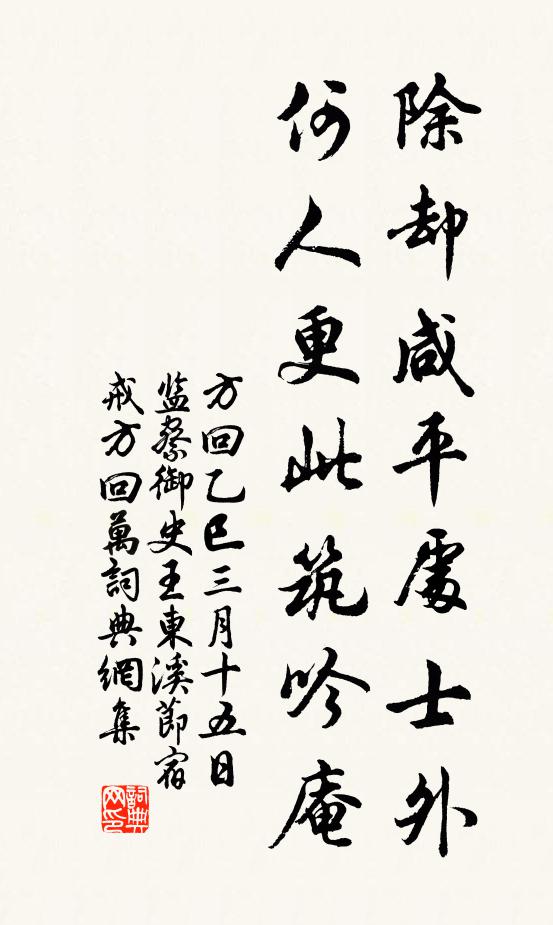 除却咸平處士外
何人更此筑吟庵
方回乙巳三月十五日
监察御史王東溪節宿
戒方回萬詞典網集
詞典
网印